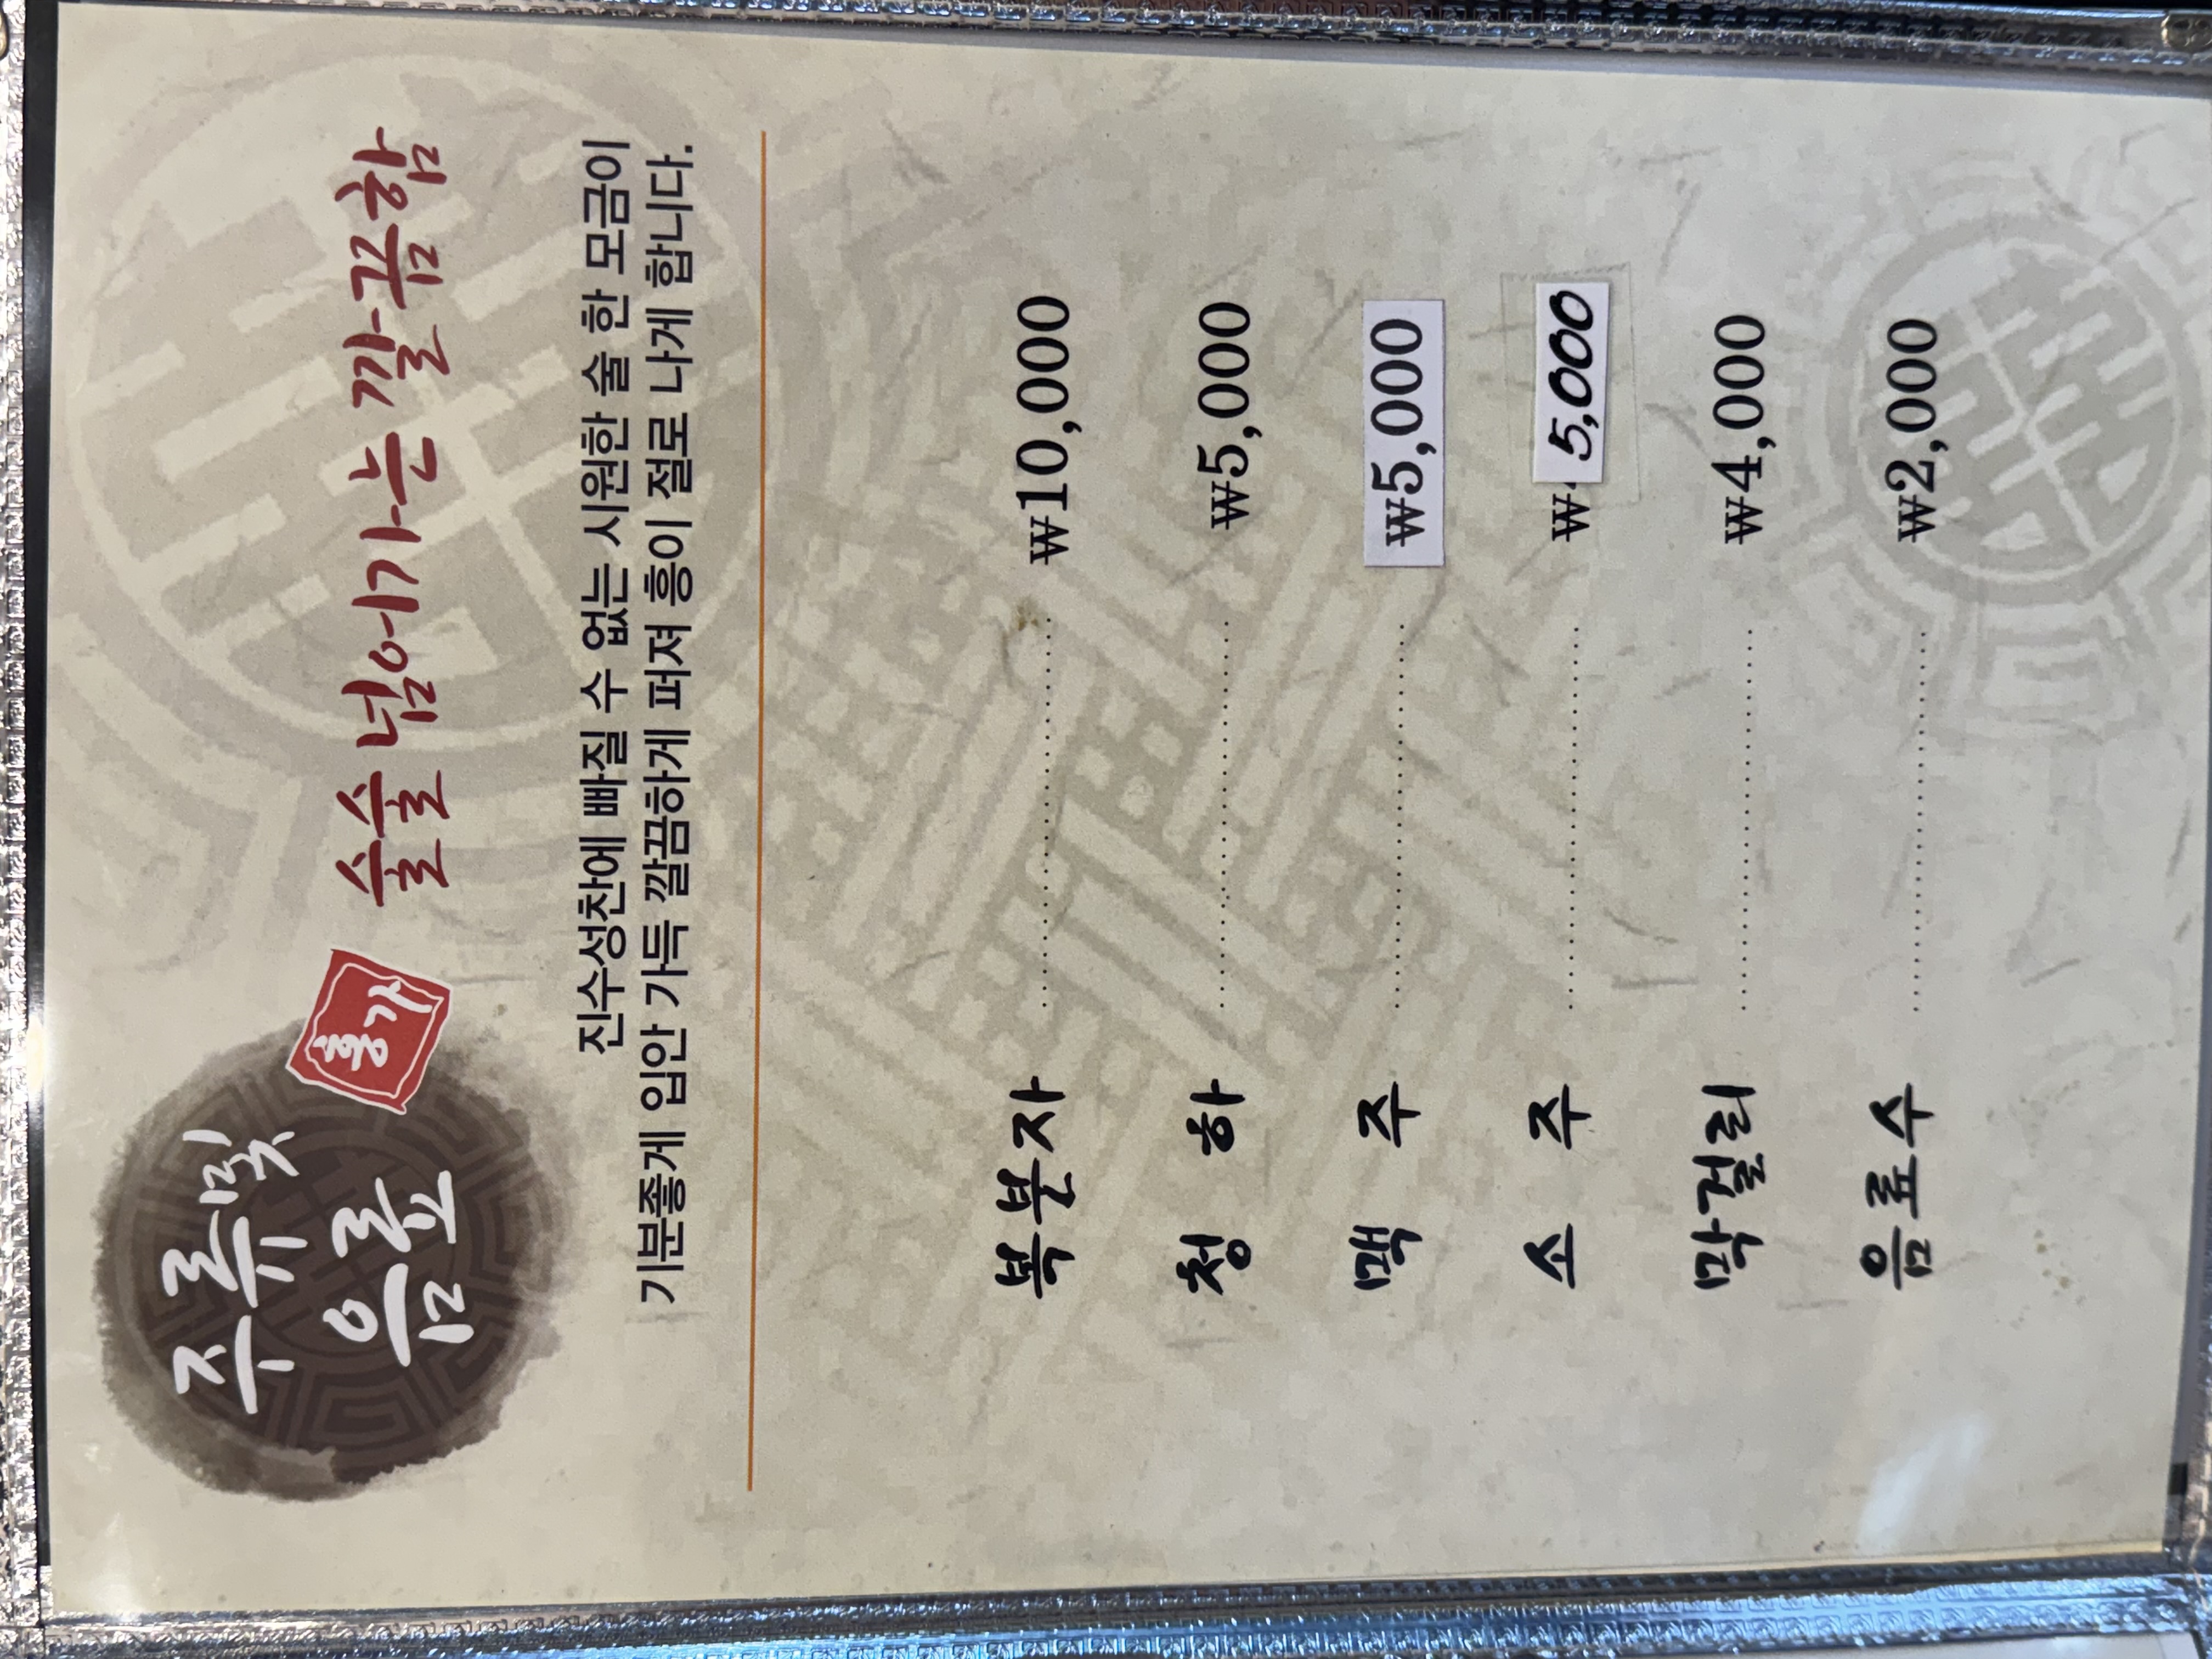 주류및
음료
흥가
술술 넘어가는 깔끔함
진수성찬에 빠질 수 없는 시원한 술 한 모금이
기분좋게 입안 가득 깔끔하게 퍼져 흥이 절로 나게 합니다.
복분자 ₩10,000
청 하 ₩5,000
맥 주 ₩5,000
소 주 ₩ 5,000
막걸리 ₩4,000
음료수 ₩2,000